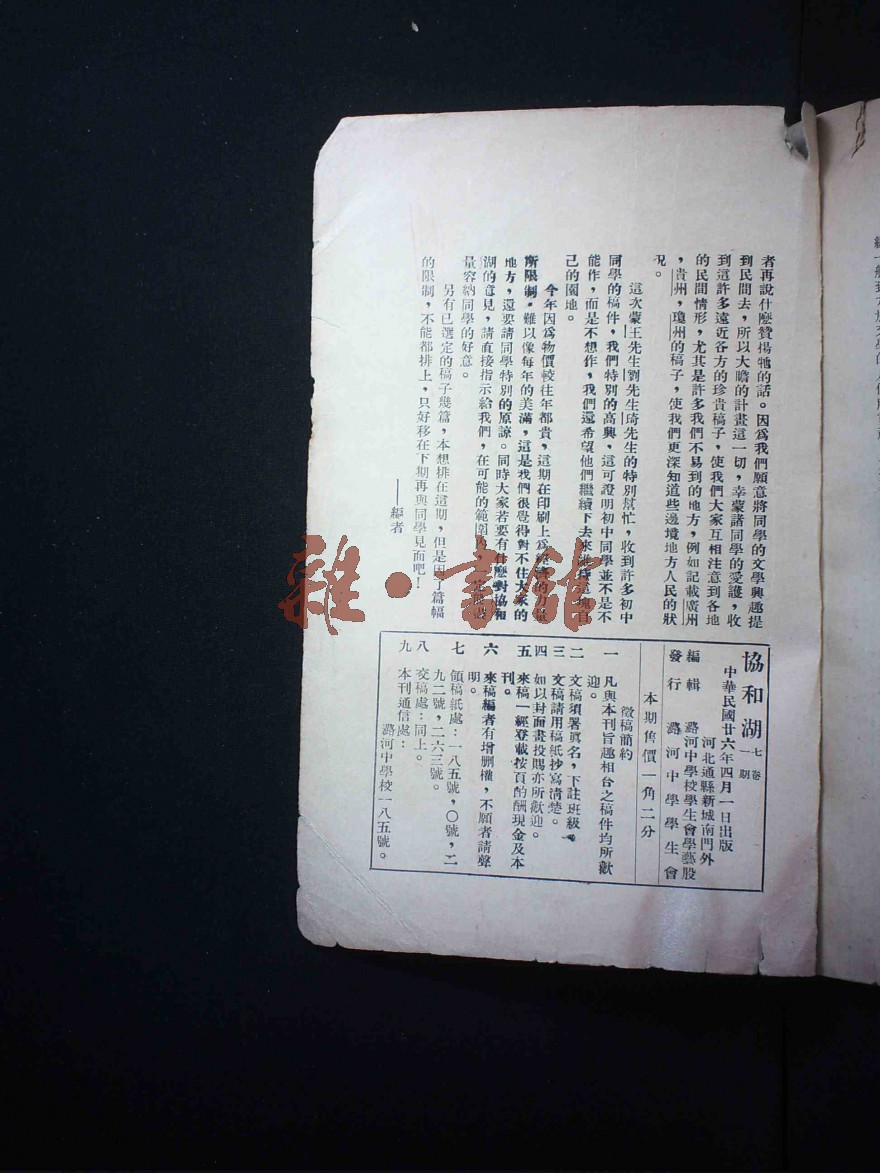 者再說什麽贊揚牠的話。因爲我們願意將同學的文學興趣提
到民間去，所以大膽的計畫這一切，幸蒙諸同學的愛護，收
到這許多遠近各方的珍貴稿子，使我們大家互相注意到各地
的民間情形，尤其是許多我們不易到的地方，例如記載廣州
，貴州，瓊州的稿子，使我們更深知道這些邊境地方人民的狀
況。
這次蒙王先生劉先生琦先生的特別幫忙，收到許多初中
同學的稿件，我們特別的高興，這可證明初中同學並不是不
能作，而是不想作，我們還希望他們繼續下去來維持這塊自
己的園地。
今年因爲物價較往年都貴，這期在印刷上爲經濟的力量
所限制，難以像每年的美滿，這是我們很覺得對不住大家的
地方，還要請同學特別的原諒。同時大家若要有什麽對協和
湖的意見，請直接指示給我們，在可能的範圍內，一定要盡
量容納同學的好意。
另有已選定的稿子幾篇，本想排在這期，但是因了篇幅
的限制，不能都排上，只好移在下期再與同學見面吧！
——編者
協和湖 七卷一期
中華民國廿六年四月一日出版
河北通縣新城南門外
編輯 潞河中學校學生會學藝股
發行 潞河中學學生會
本期售價一角二分
徵稿簡約
一 凡與本刊旨趣相合之稿件均所歡
迎。
二 文稿須署眞名，下註班級。
三 文稿請用稿紙抄寫清楚。
四 如以封面畫投賜亦所歡迎。
五 來稿一經登載按頁酌酬現金及本
刊。
六 來稿編者有增刪權，不願者請聲
明。
七 領稿紙處：一八五號，〇號，二
九二號，二六三號。
八 交稿處：同上。
九 本刊通信處：
潞河中學校一八五號。
雜·書館